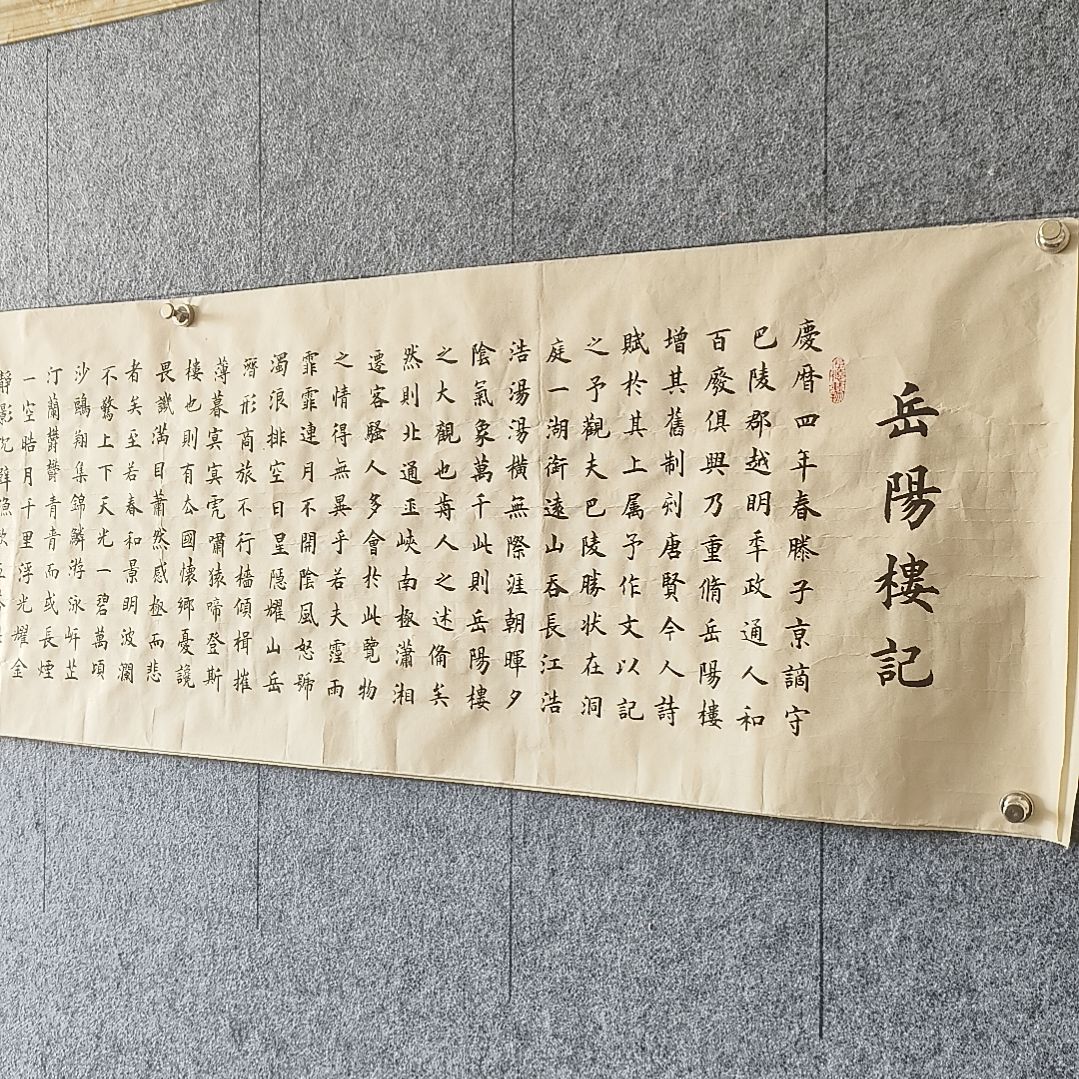 岳陽樓記
慶曆四年春滕子京謫守
巴陵郡越明年政通人和
百廢俱興乃重脩岳陽樓
增其舊制刻唐賢今人詩
賦於其上属予作文以記
之予觀夫巴陵勝状在洞
庭一湖銜遠山吞長江浩
浩湯湯橫無際涯朝暉夕
陰氣象萬千此則岳陽樓
之大觀也前人之述備矣
然則北通巫峽南極瀟湘
遷客騷人多會於此覽物
之情得無異乎若夫霪雨
霏霏連月不開陰風怒號
濁浪排空日星隱耀山岳
潛形商旅不行檣傾楫摧
薄暮冥冥虎嘯猿啼登斯
樓也則有去國懷鄉憂讒
畏譏滿目蕭然感極而悲
者矣至若春和景明波瀾
不驚上下天光一碧萬頃
沙鷗翔集錦鱗游泳岸芷
汀蘭欝欝青青而或長煙
一空皓月千里浮光耀金
靜影沉璧漁歌